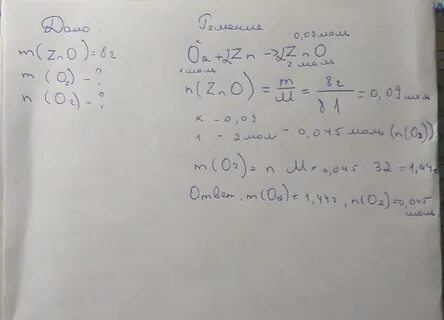 Дано:
m(ZnO)=8г
m(O₂)-?
n(O₂)-?
Решение
x 0,09 моль
O₂+2Zn->2ZnO
1 моль 2 моль
n(ZnO)=m/M=8г/81=0,09 моль
x - 0,09
1 - 2 моль = 0,045 моль (n(O₂))
m(O₂)=n M=0,045·32=1,44г
Ответ. m(O₂)=1,44г, n(O₂)=0,045 моль.